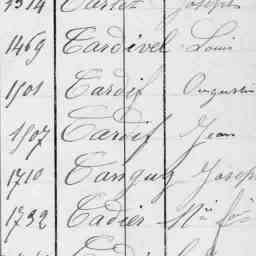 1314 Tartez Joseph
1469 Tardivel Louis
1501 Tardif Augustin
1507 Tardif Jean
1710 Tanguy Joseph
1732 Tadier